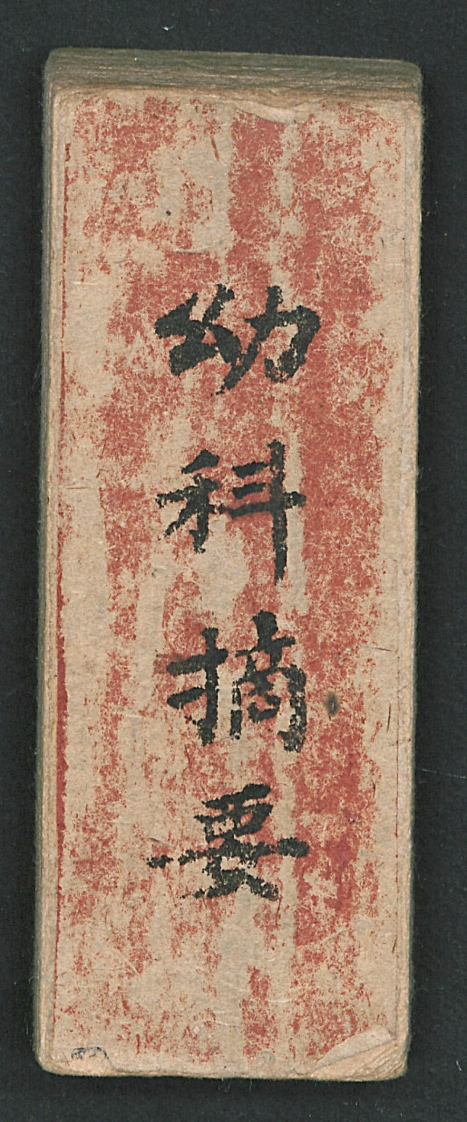 幼科摘要